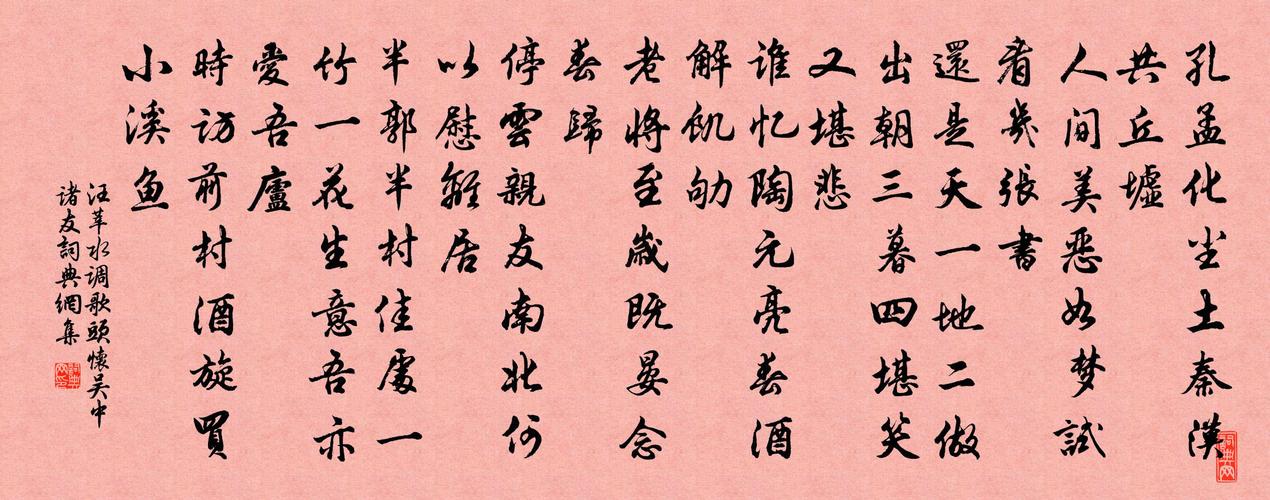 孔孟化尘土秦漢
共丘墟
人间美惡如梦試
看幾張書
還是天一地二做
出朝三暮四堪笑
又堪悲
谁忆陶元亮春酒
解飢劬
老將至歲既晏念
春歸
停雲親友南北何
以慰離居
半郭半村佳處一
竹一花生意吾亦
愛吾廬
時訪前村酒旋買
小溪魚
汪莘水调歌頭懷吴中
诸友詞典網集